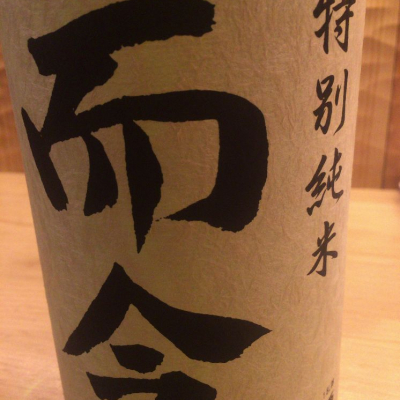 特別純米
而今